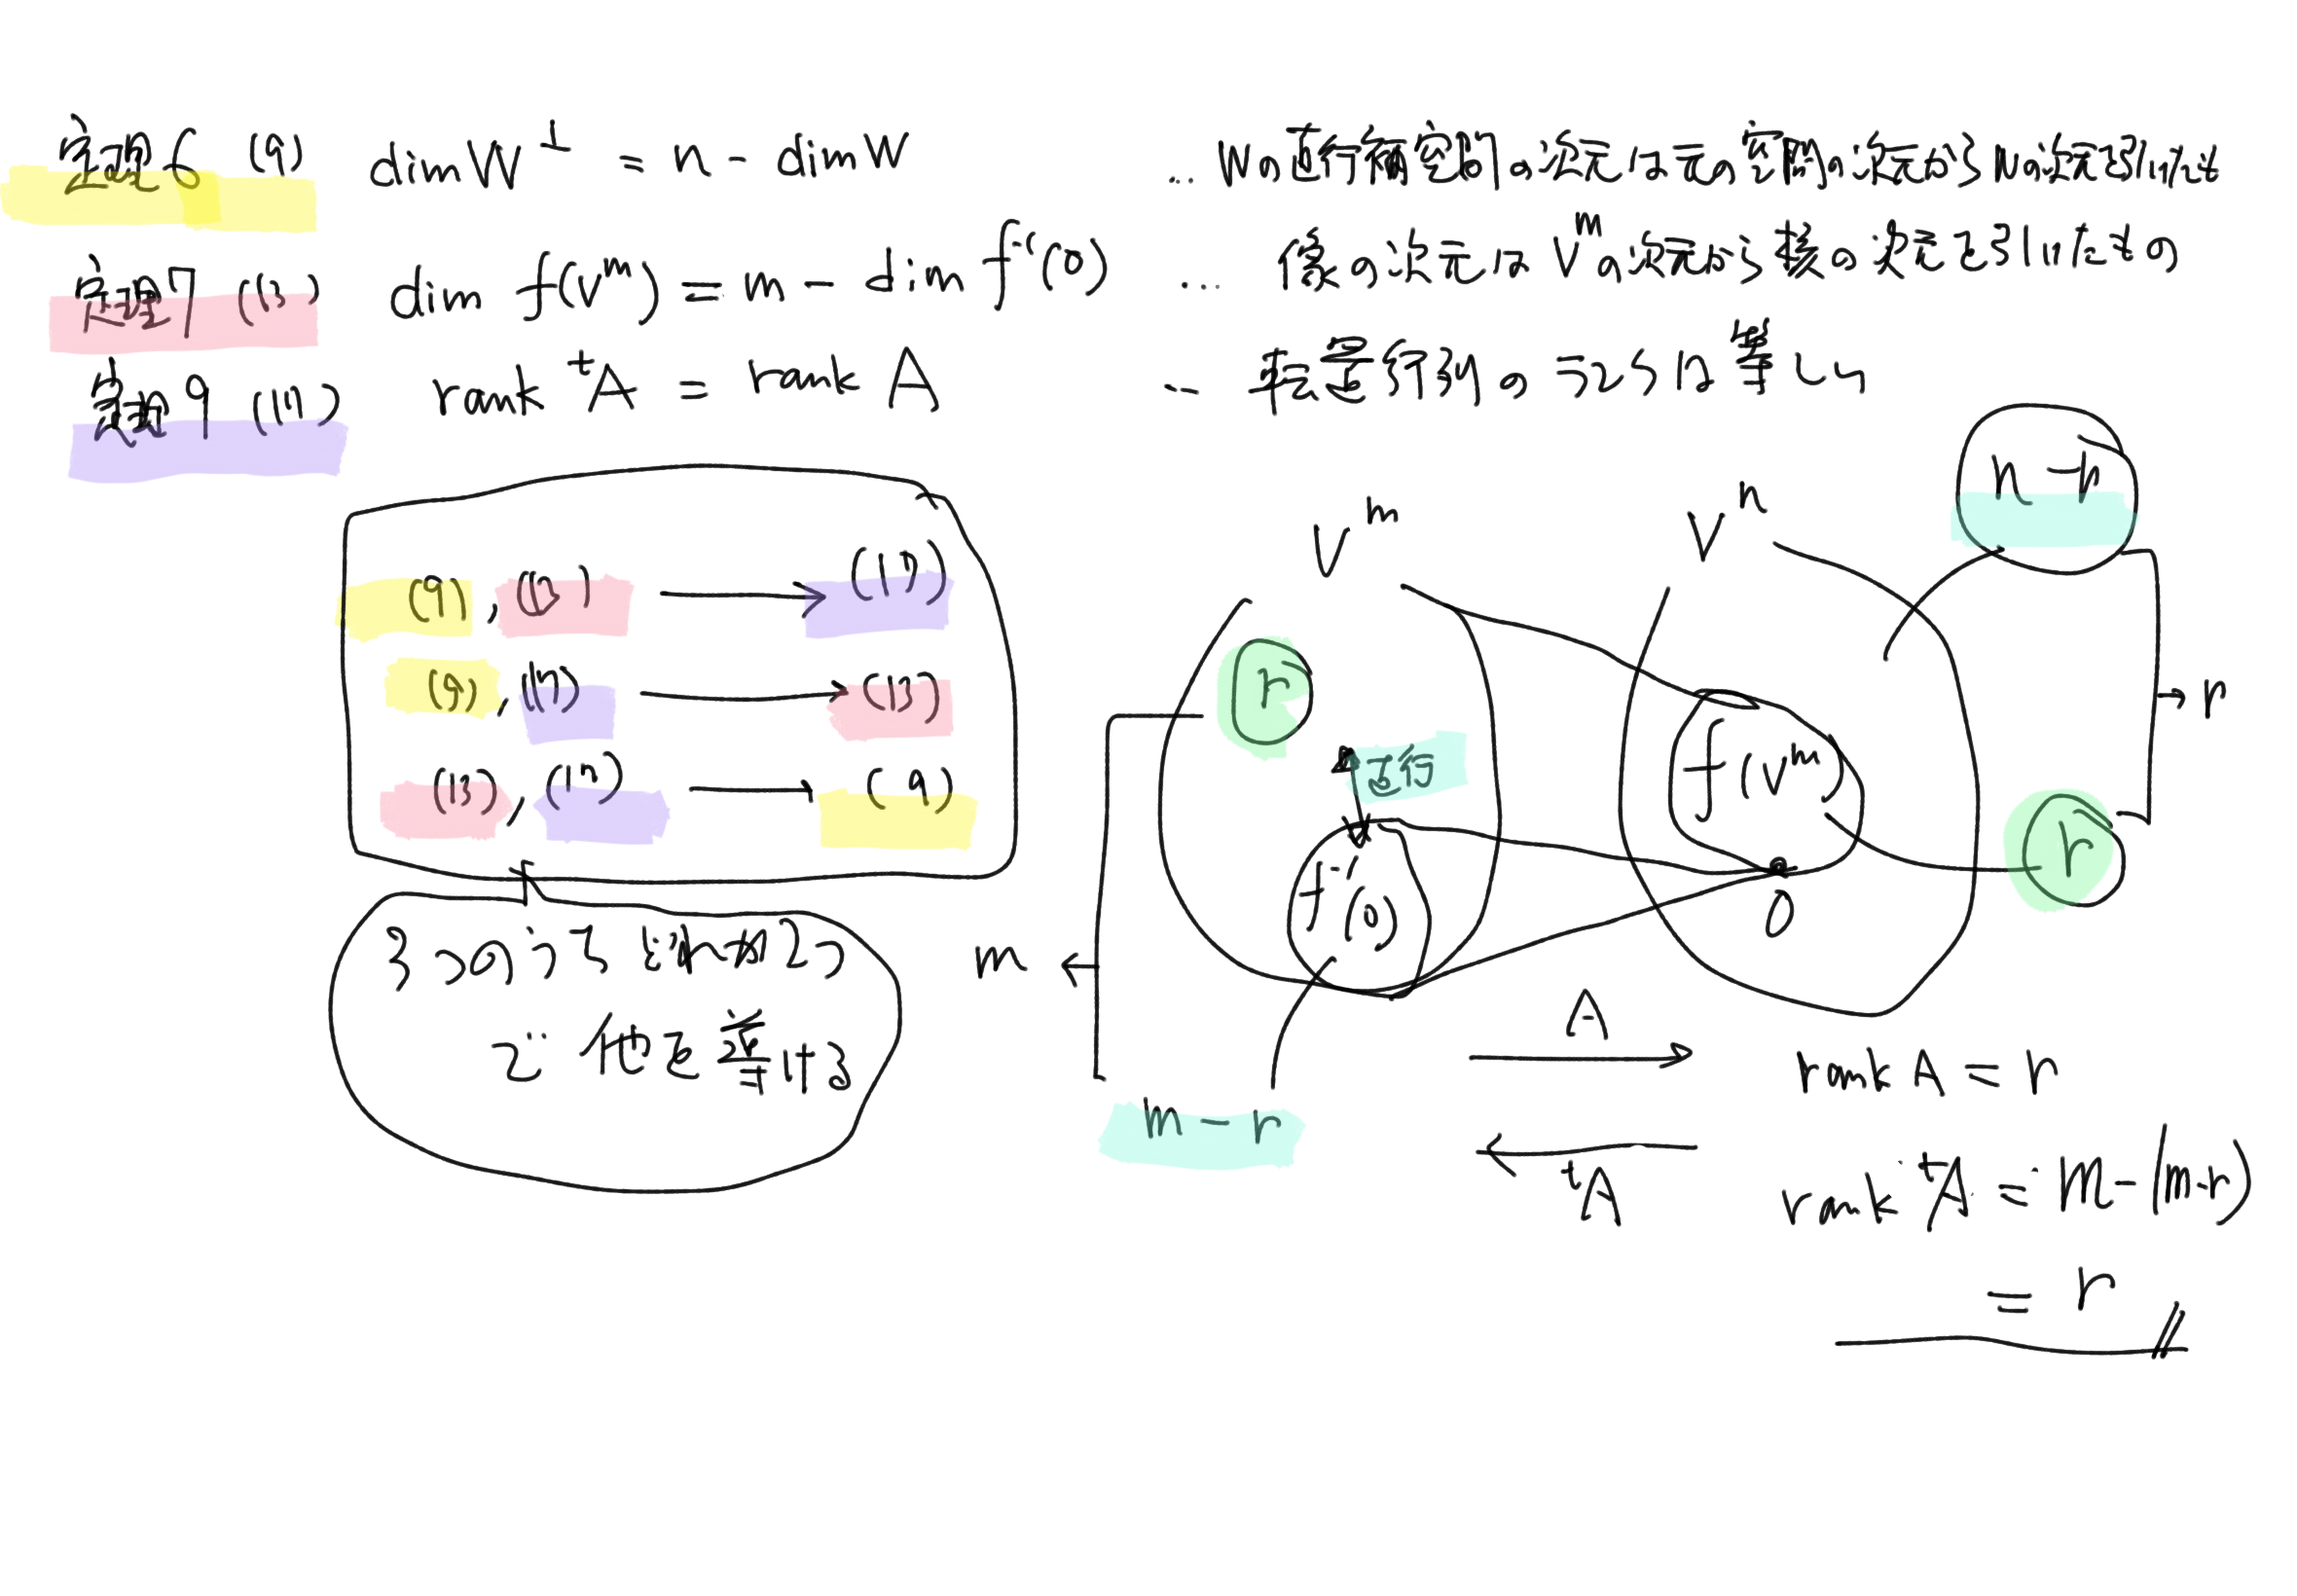 定理6 (9) dim W^⊥ = n - dim W … Wの直行補空間の次元は元の空間の次元からWの次元を引いたも
定理7 (13) dim f(V^m) = m - dim f^-1(0) … 像の次元は V^mの次元から核の次元を引いたもの
定理9 (17) rank ^tA = rank A … 転置行列のランクは等しい
(9), (13) → (17)
(9), (17) → (13)
(13), (17) → (9)
3つのうちどれか2つ
で 他を導ける
V^m
V^n
n-r
r
直行
f(V^m)
r
r
f^-1(0)
0
m
m-r
A
^tA
rank A = r
rank ^tA = m-(m-r)
= r